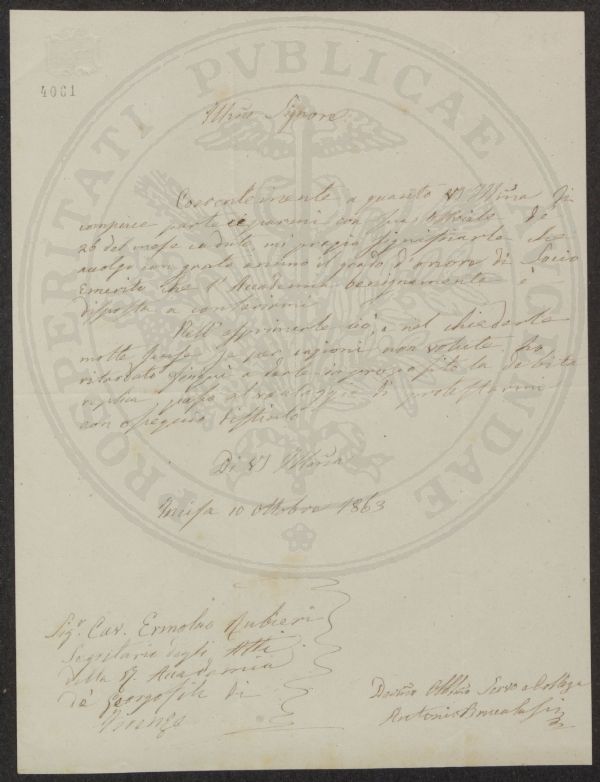 4061
PROSPERITATI PVBLICAE AVGENDAE
Illmo Signore
Coerentemente a quanto VS Illma Si
compiace parteciparmi con sua Officiale de
26 del mese caduto mi pregio significarle che
accolgo con grato animo il grado d'onore di Socio
Emerito che l'Accademia benignamente è
disposta a conferirmi
Nell'esprimerle ciò, e nel chiederle
molte scuse se per cagioni non volute ho
ritardato sinqui a darle in proposito la debita
replica, passo al vantaggio di protestarmi
con ossequio distinto
Di VS Illma
10 Ottobre 1863
Sigr. Cav. Ermolao Rubieri
Segretario degli Atti
della R. Accademia
de' Georgofili di
Firenze
Devmo Obbmo Servo e Collega
Antonio